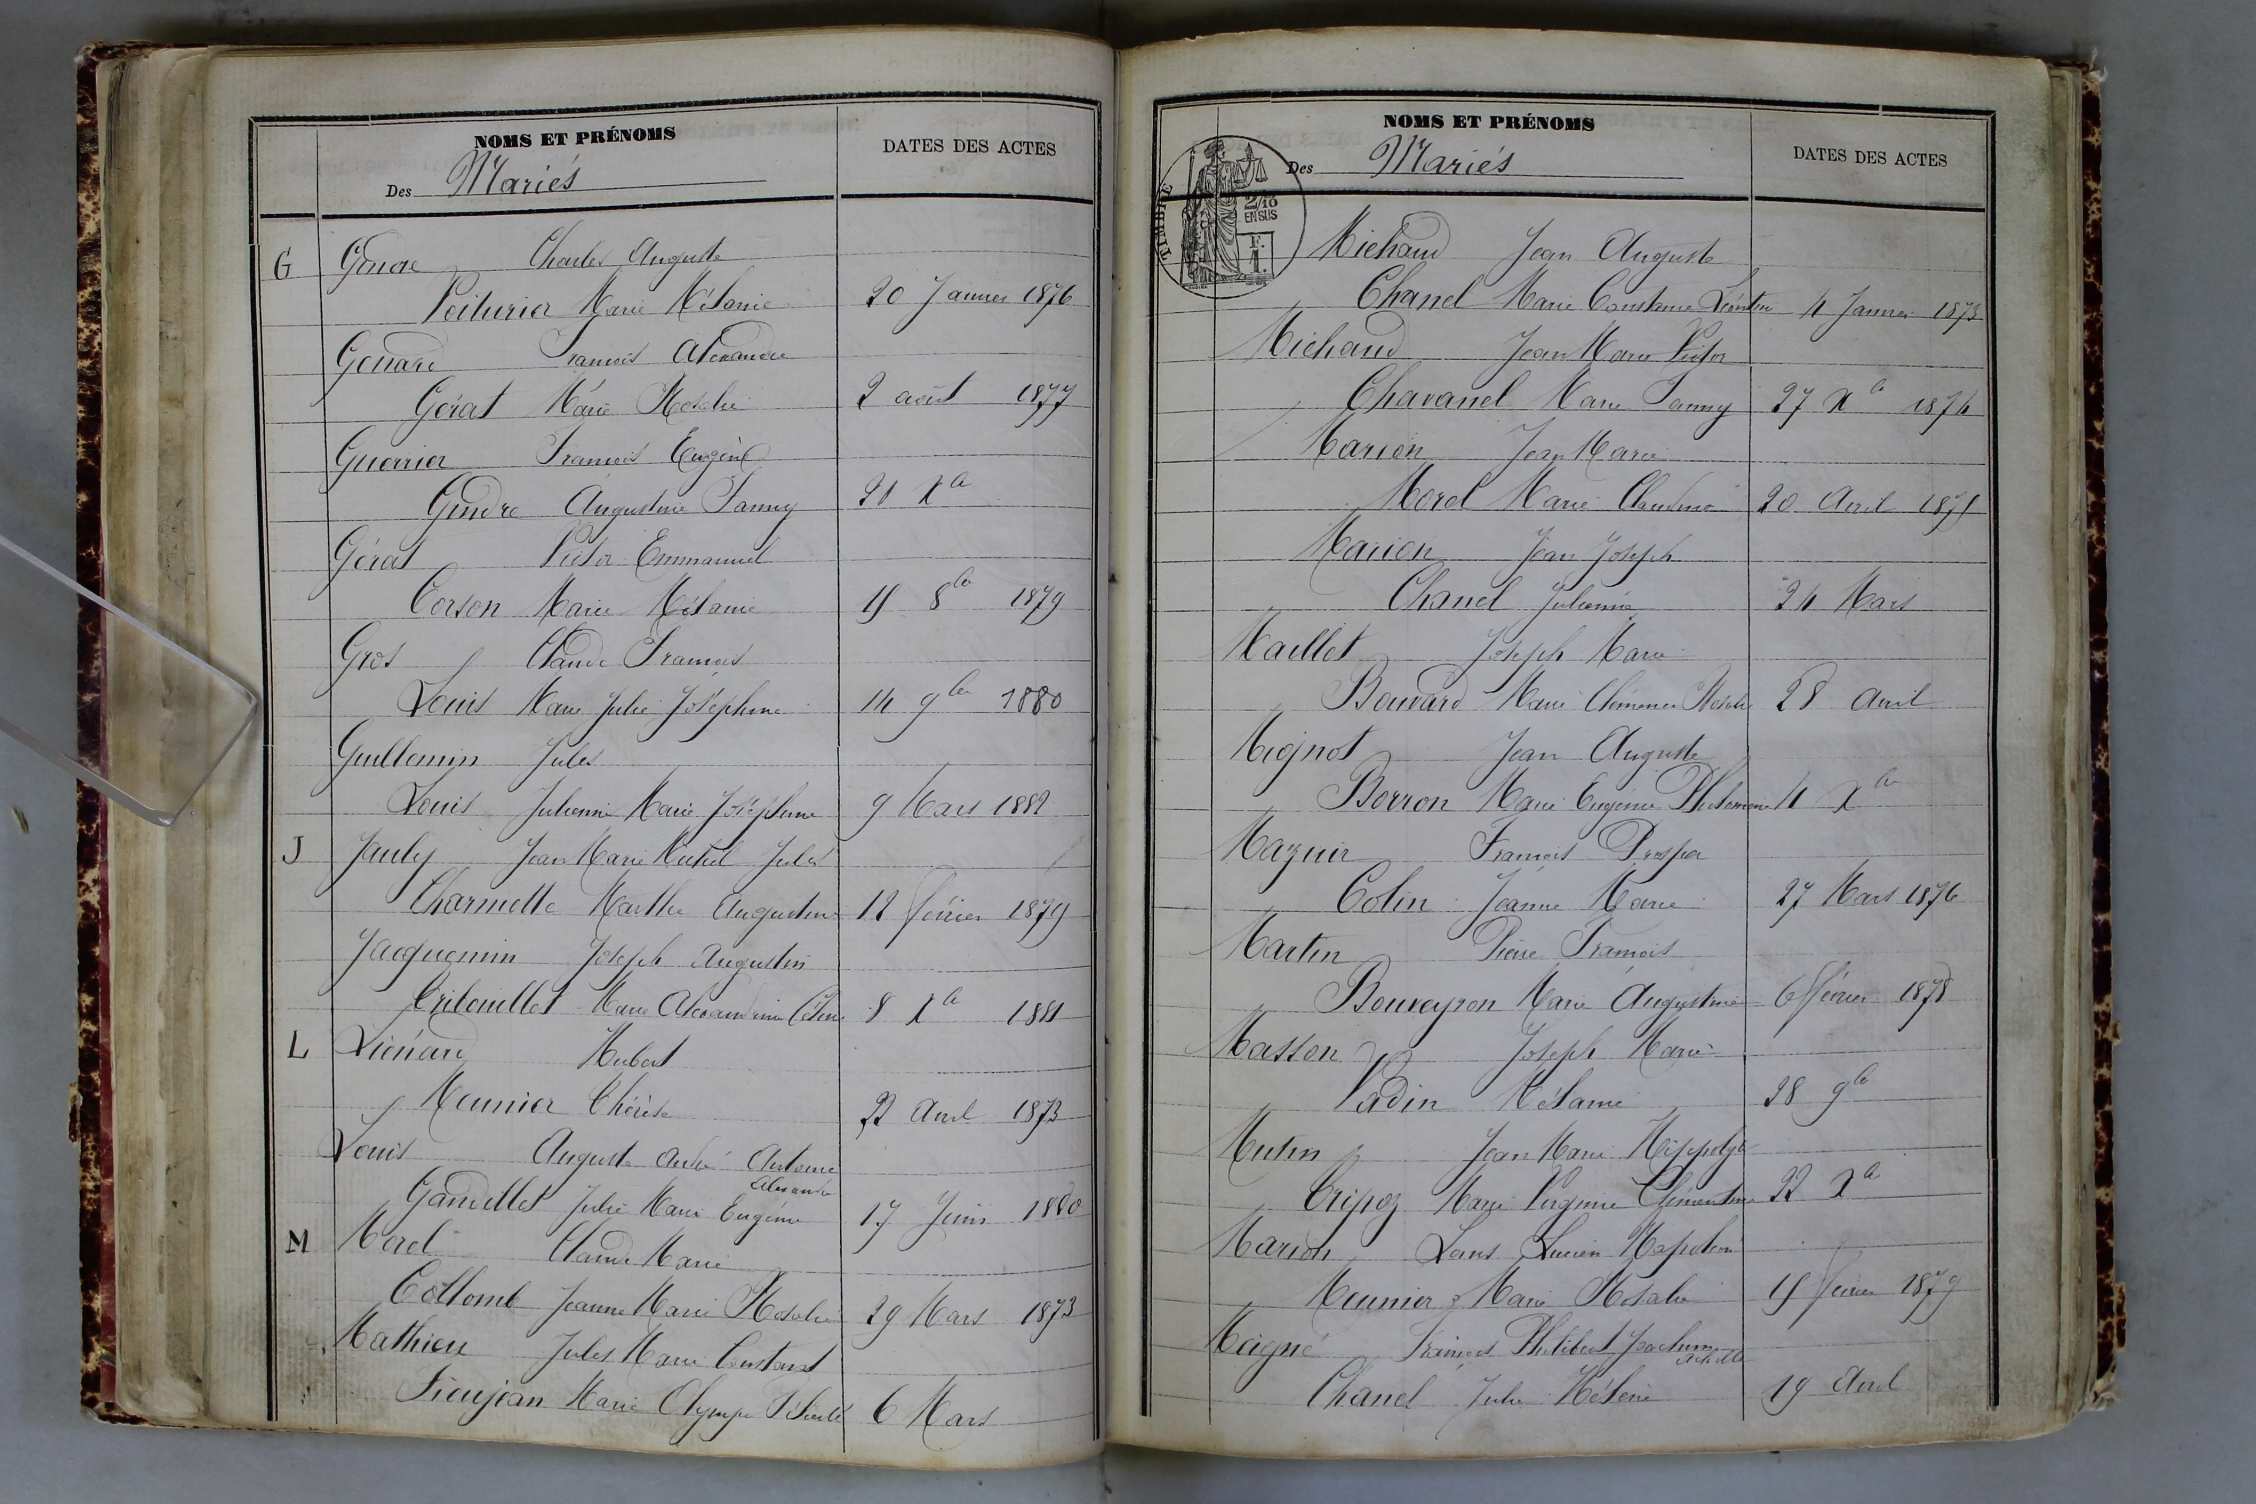 NOMS ET PRÉNOMS
DATES DES ACTES
Des Mariés
G Charles Auguste
Poiturier Marie Mélanie 20 Janvier 1876
François Alexandre
Gérat Marie Rosalie 2 août 1877
Guerrier François Eugène
Gindre Augustine Fanny 21 Xbre
Gérat Victor Emmanuel
Corson Marie Mélanie 8bre 1879
Gros Claude François
Louis Marie Julie Joséphine 14 9bre 1880
Guillemin Jules
Louis Julienne Marie Joséphine 9 Mars 1882
J Jean Marie Michel Jules
Charmette Marthe Augustine 12 février 1879
Jacquemin Joseph Augustin
Marie Alexandrine 8 Xbre 1881
L Liénard Hubert
Meunier Thérèse 22 Avril 1873
Louis Auguste André Antoine
Alexandre
Gandillet Julie Marie Eugénie 17 Juin 1880
M Morel Claude Marie
Collomb Jeanne Marie Rosalie 29 Mars 1873
Mathieu Jules Marie Constant
Fieujean Marie Olympe Félicité 6 Mars
NOMS ET PRÉNOMS
DATES DES ACTES
Des Mariés
TIMBRE
2/10
EN SUS
F.
1.
Michaud Jean Auguste
Chanel Marie Constance Léontine 4 Janvier
Michaud Jean Marie Victor
Chavanel Marie Fanny 27 Xbre 1874
Marion Jean Marie
Morel Marie Claudine 20 Avril 1875
Marion Jean Joseph
Chanel Julienne 24 Mars
Maillet Joseph Marie
Bouvard Marie Clémence Rosalie 28 Avril
Mignot Jean Auguste
Borron Marie Eugénie Philomène 4 Xbre
Mazuir François Prosper
Colin Jeanne Marie 27 Mars 1876
Martin Pierre François
Bouveyron Marie Augustine 6 février 1878
Masson Joseph Marie
Vadin Mélanie 28 9bre
Mutin Jean Marie Hippolyte
Tripoz Marie Virginie Clémentine 22 Xbre
Marion Louis Lucien Napoléon
Meunier Marie Rosalie février 1879
François Philibert Joachim
Achille
Chanel Julie 19 Avril